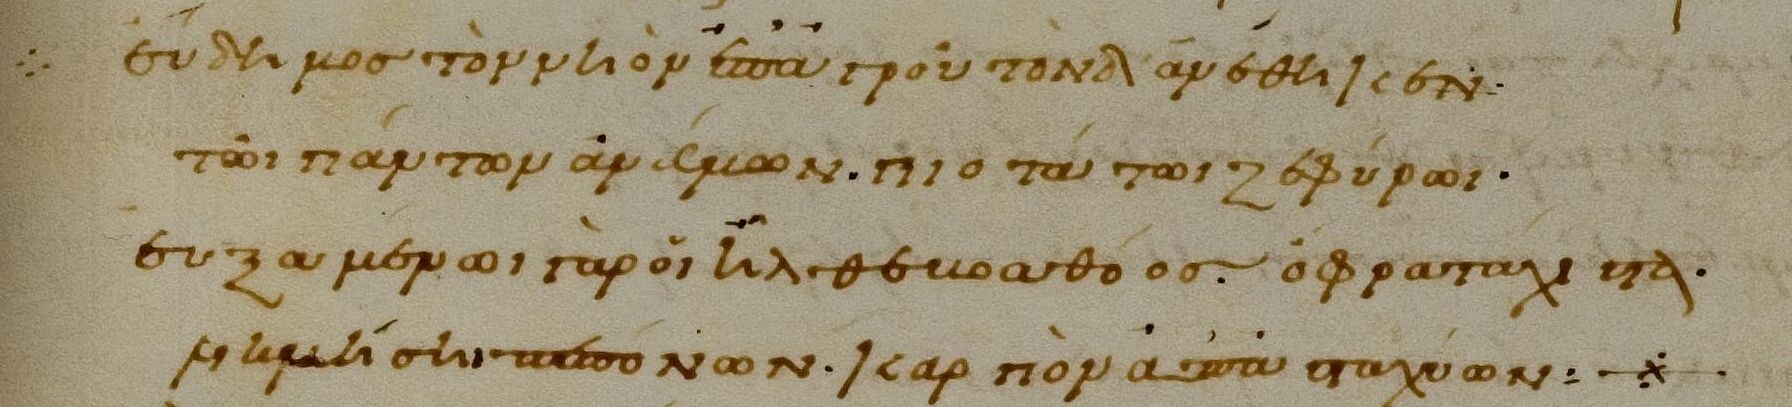 εὐδημος τὸν νηὸν ἐπ' ἀγροῦ τόνδ' ἀνέθηκεν·
τῶι πάντων ἀνέμων. πιοτάτωι ζεφύρωι·
εὐξαμένωι γὰρ οἷ ἦλθε βοαθόος· ὄφρα τάχιστα·
λικμήσηι πεπόνων. καρπὸν ἀπ' ἀσταχύων: